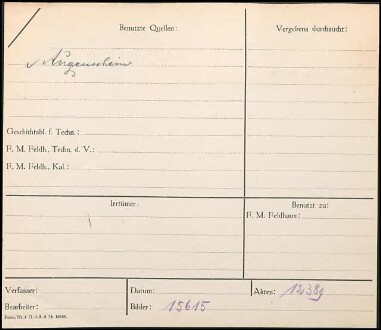 Benutzte Quellen:
Vergebens durchsucht:
Augenschein
Geschichtsbl. f. Techn.:
F. M. Feldh., Techn. d. V.:
F. M. Feldh., Kal.:
Irrtümer:
Benutzt zu:
F. M. Feldhaus:
Verfasser:
Datum:
Akten: 12389
Bearbeiter:
Bilder: 15615